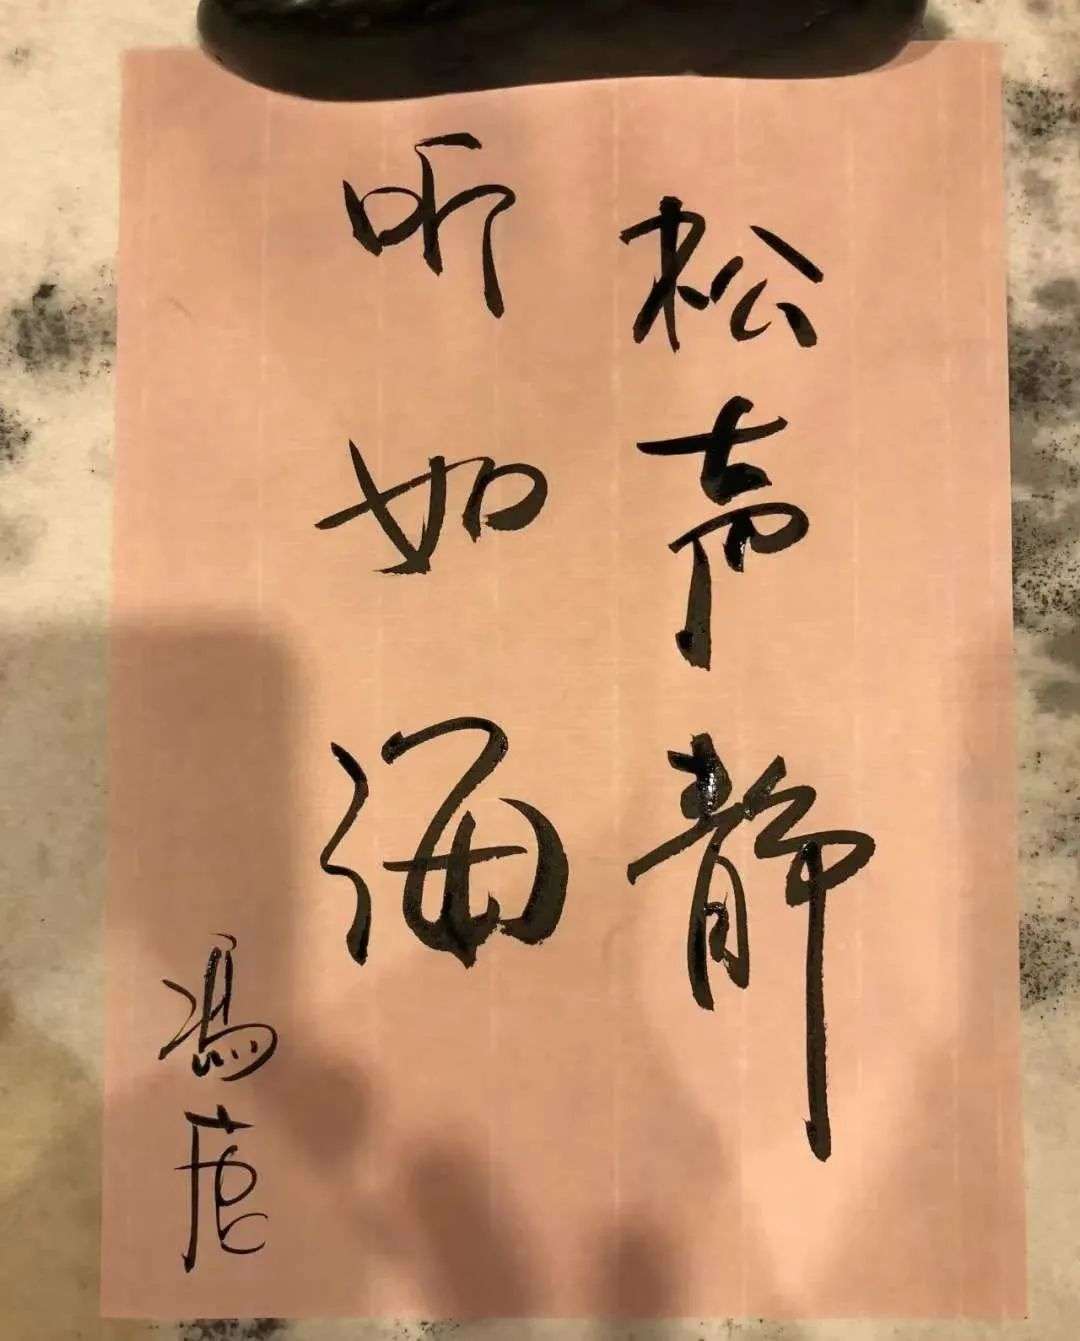 松声静
听如海
馮唐